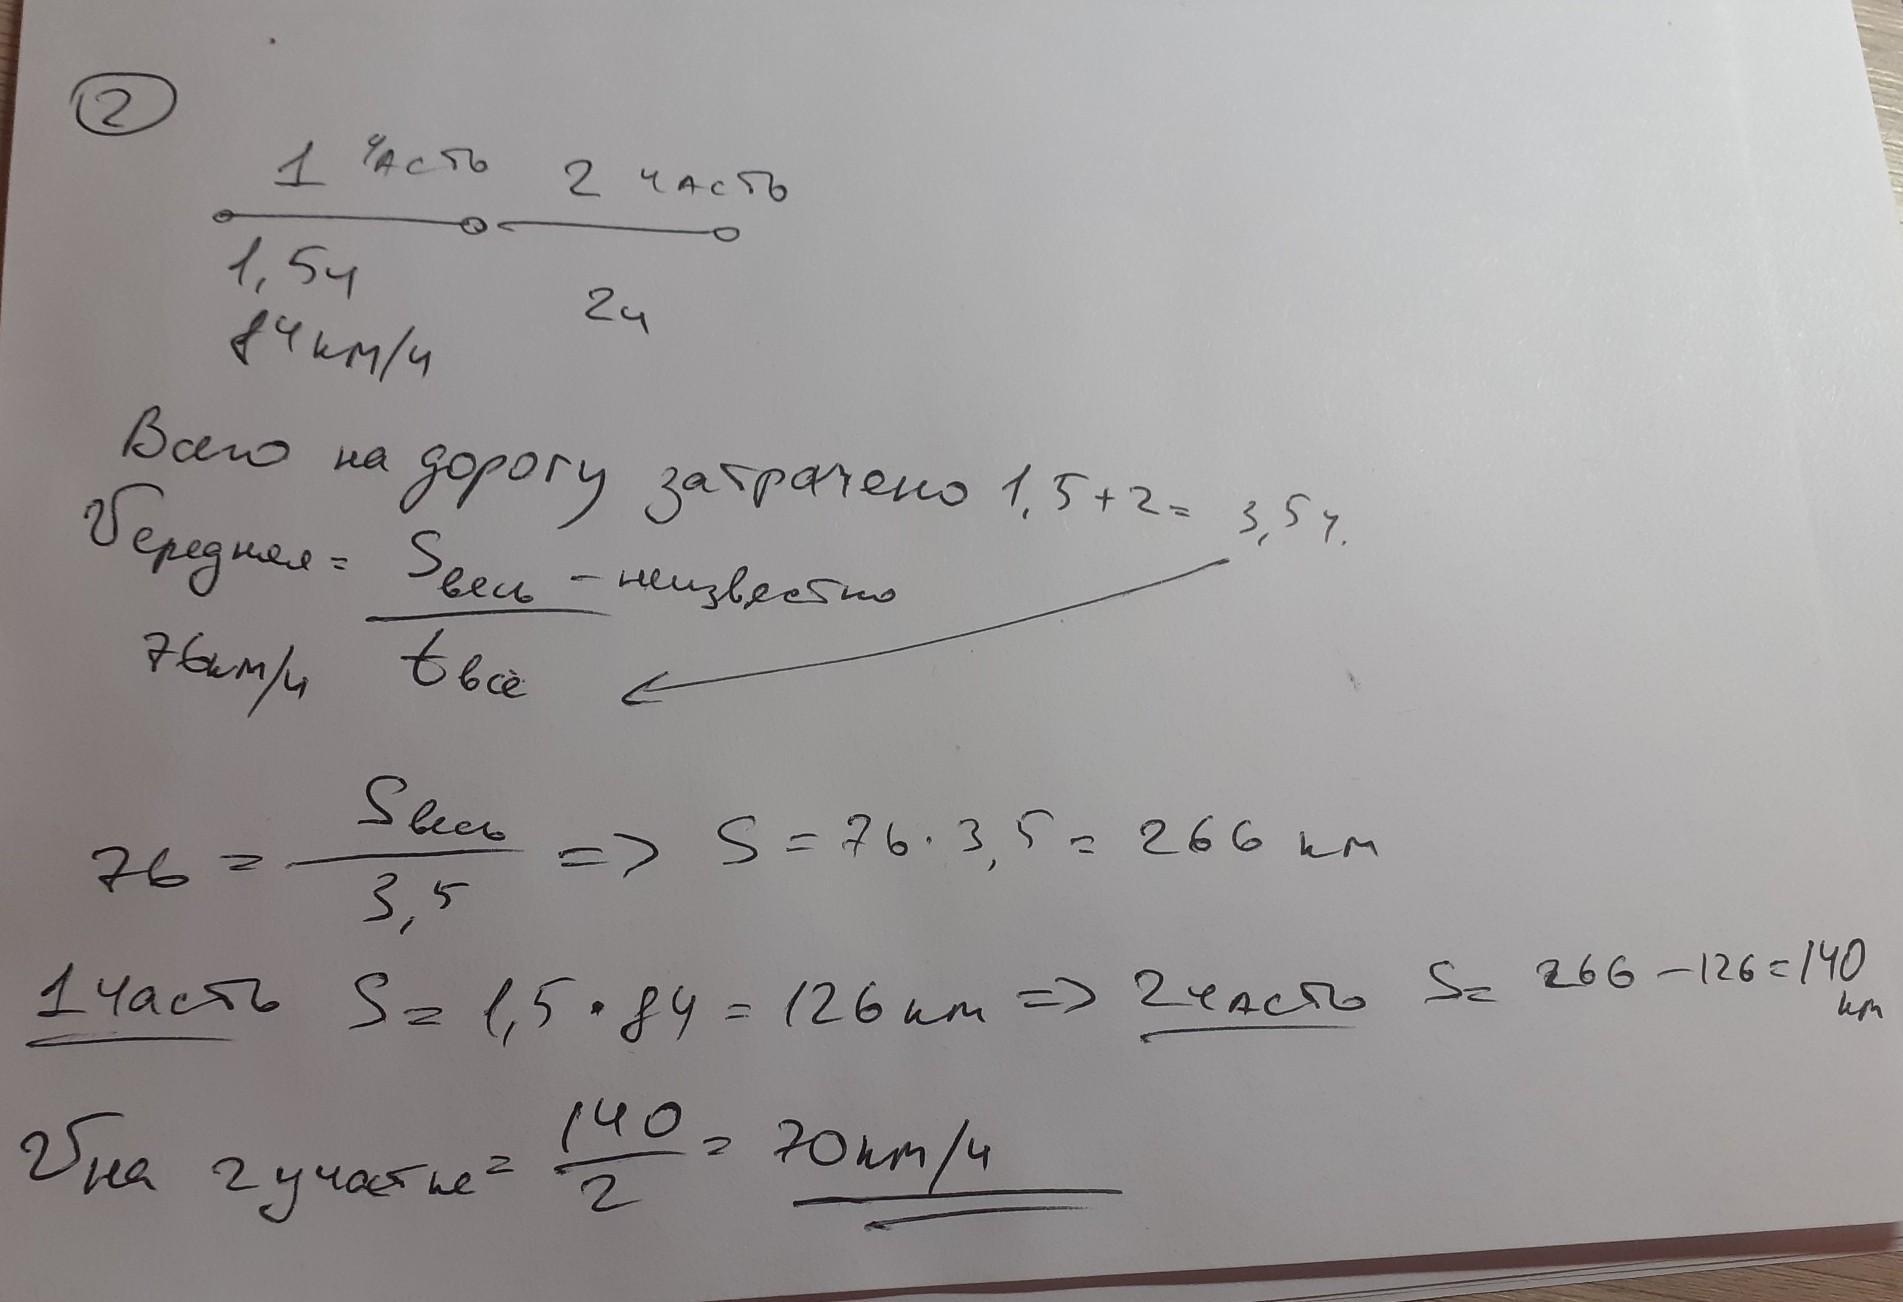 2
1 часть 2 часть
1,5ч
2ч
84км/ч
Всего на дорогу затрачено 1,5+2= 3,5ч.
Vсредняя = Sвесь - неизвестно
76км/ч tвсё
76 = Sвесь / 3,5 => S = 76·3,5 = 266 км
1 часть S = 1,5·84 = 126км => 2 часть S = 266 - 126 = 140 км
Vна 2 участке = 140 / 2 = 70км/ч